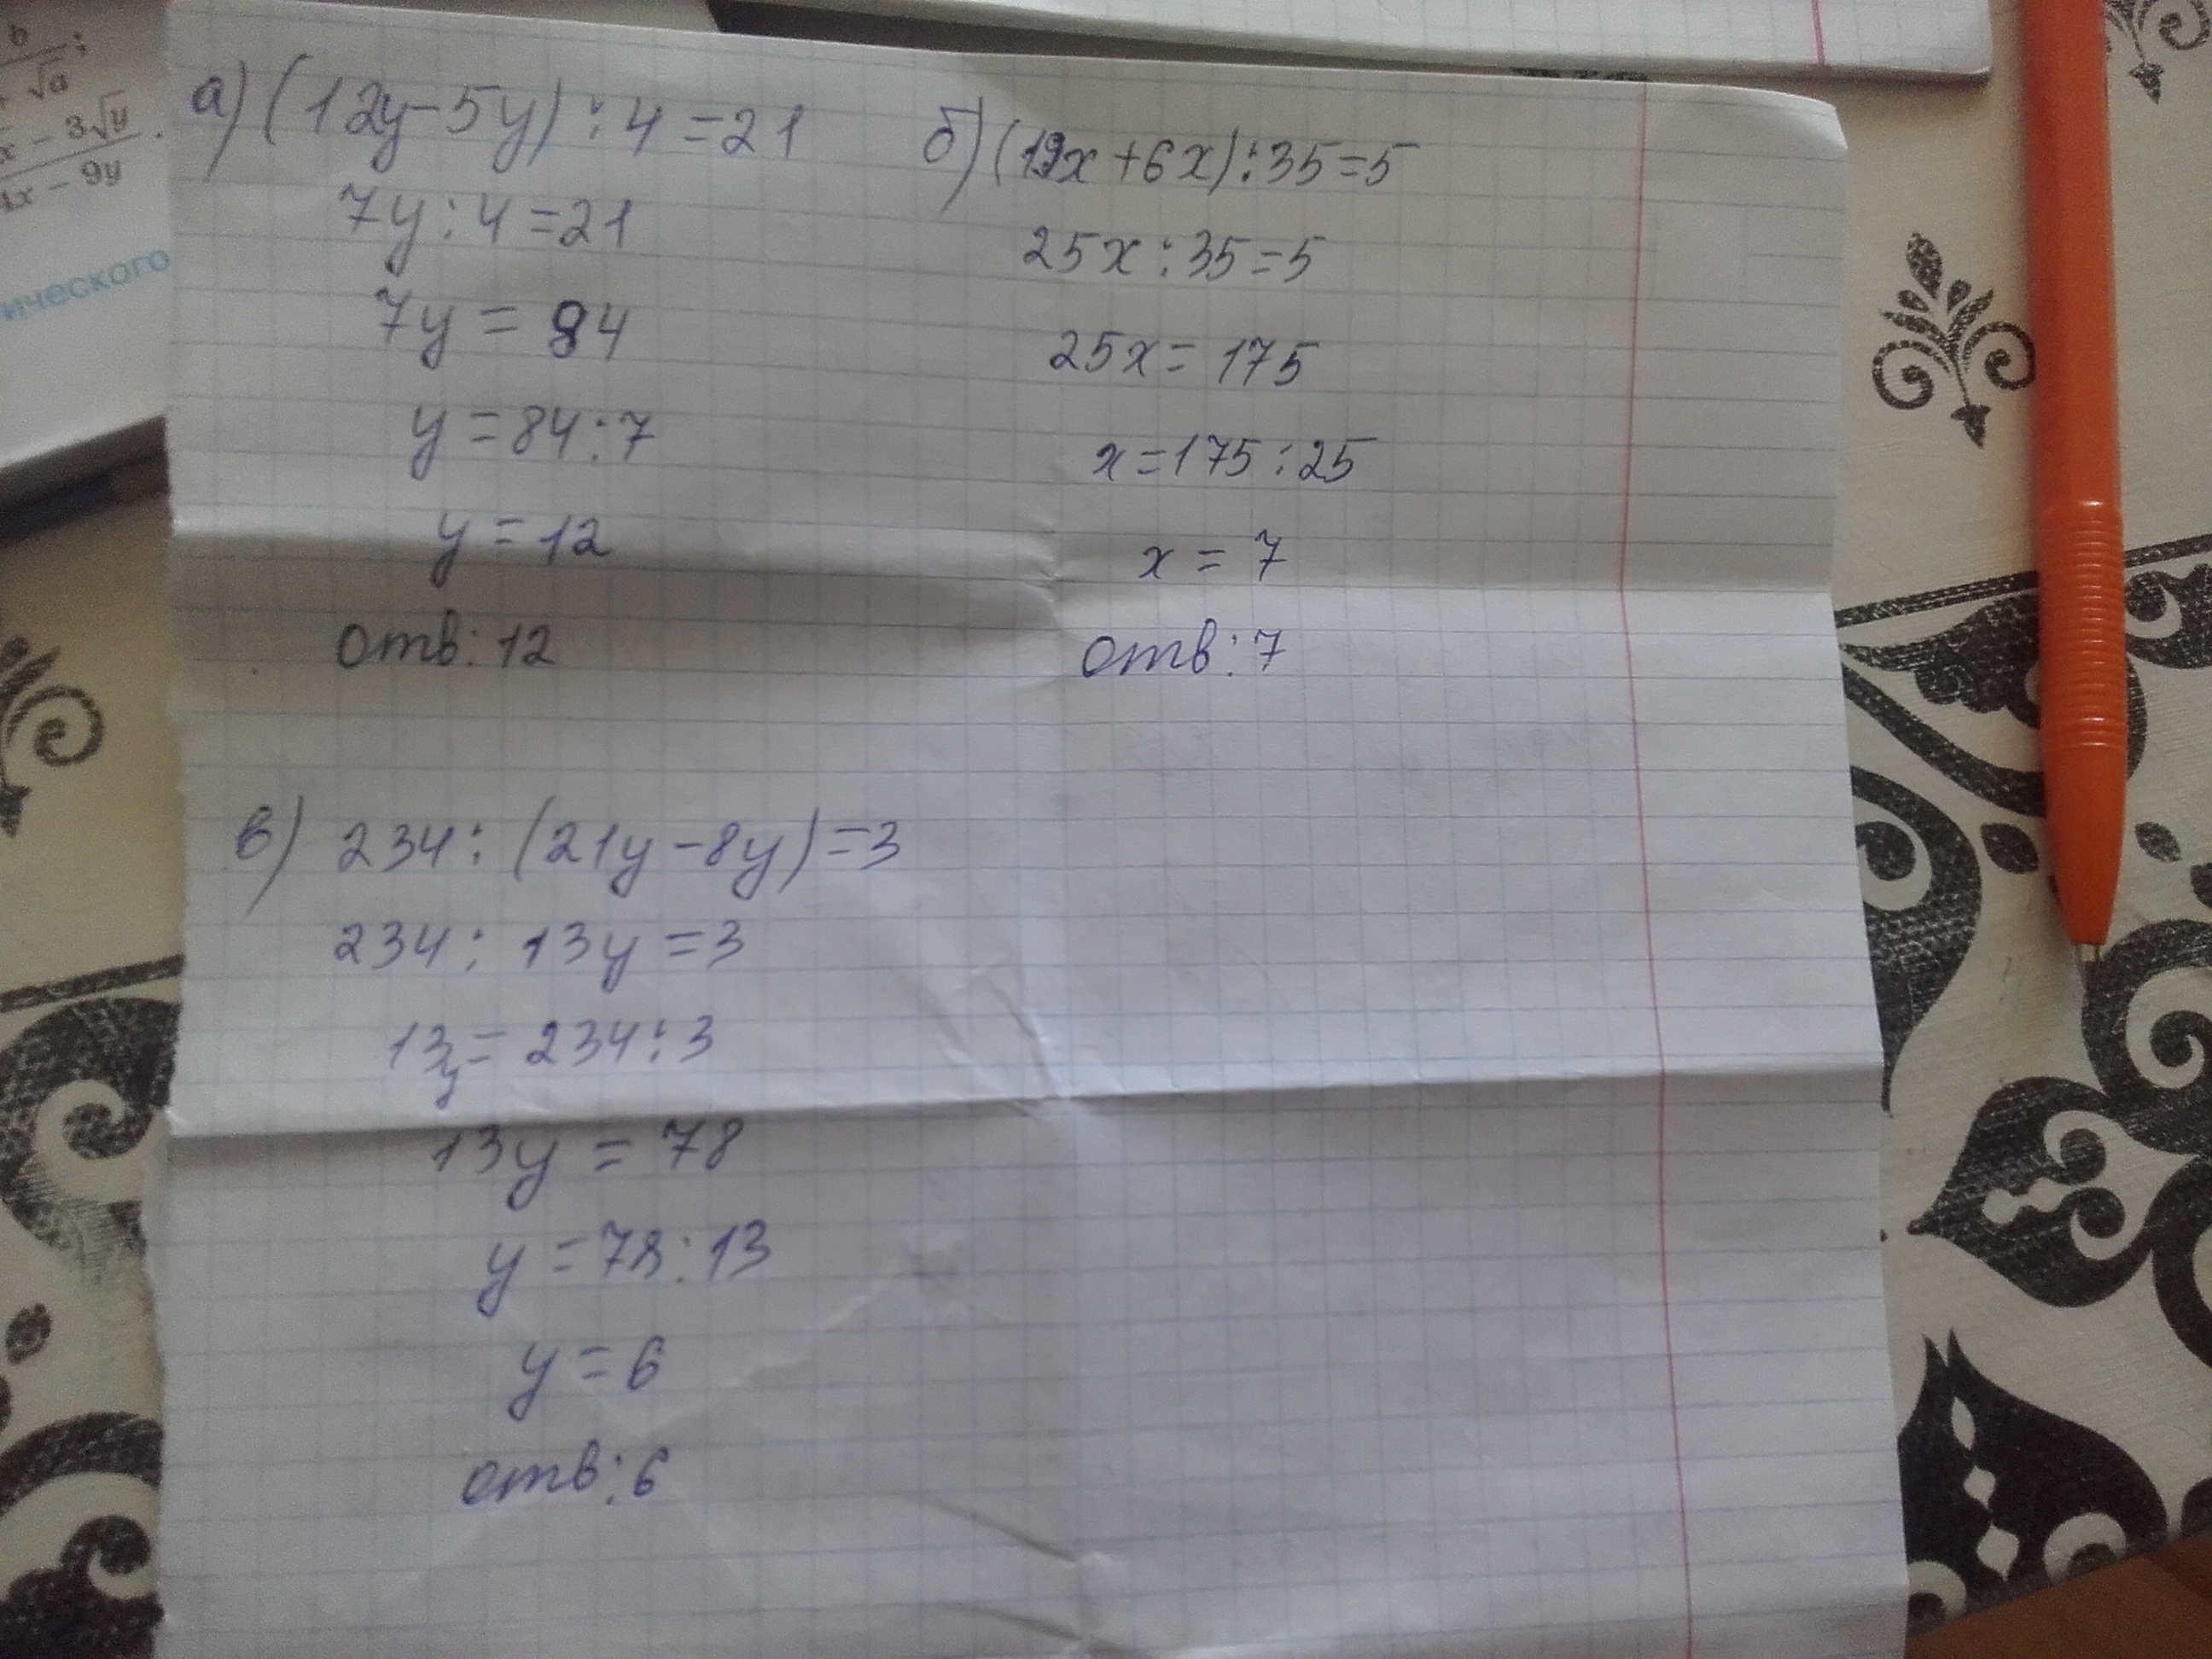 b
√a :
x - 3√y
4x - 9y .
ического
а) (12y-5y):4=21
7y:4=21
7y = 84
y=84:7
y=12
отв: 12
б) (19x+6x):35=5
25x:35=5
25x=175
x=175:25
x=7
отв: 7
в) 234:(21y-8y)=3
234:13y=3
13y=234:3
13y=78
y=78:13
y=6
отв: 6